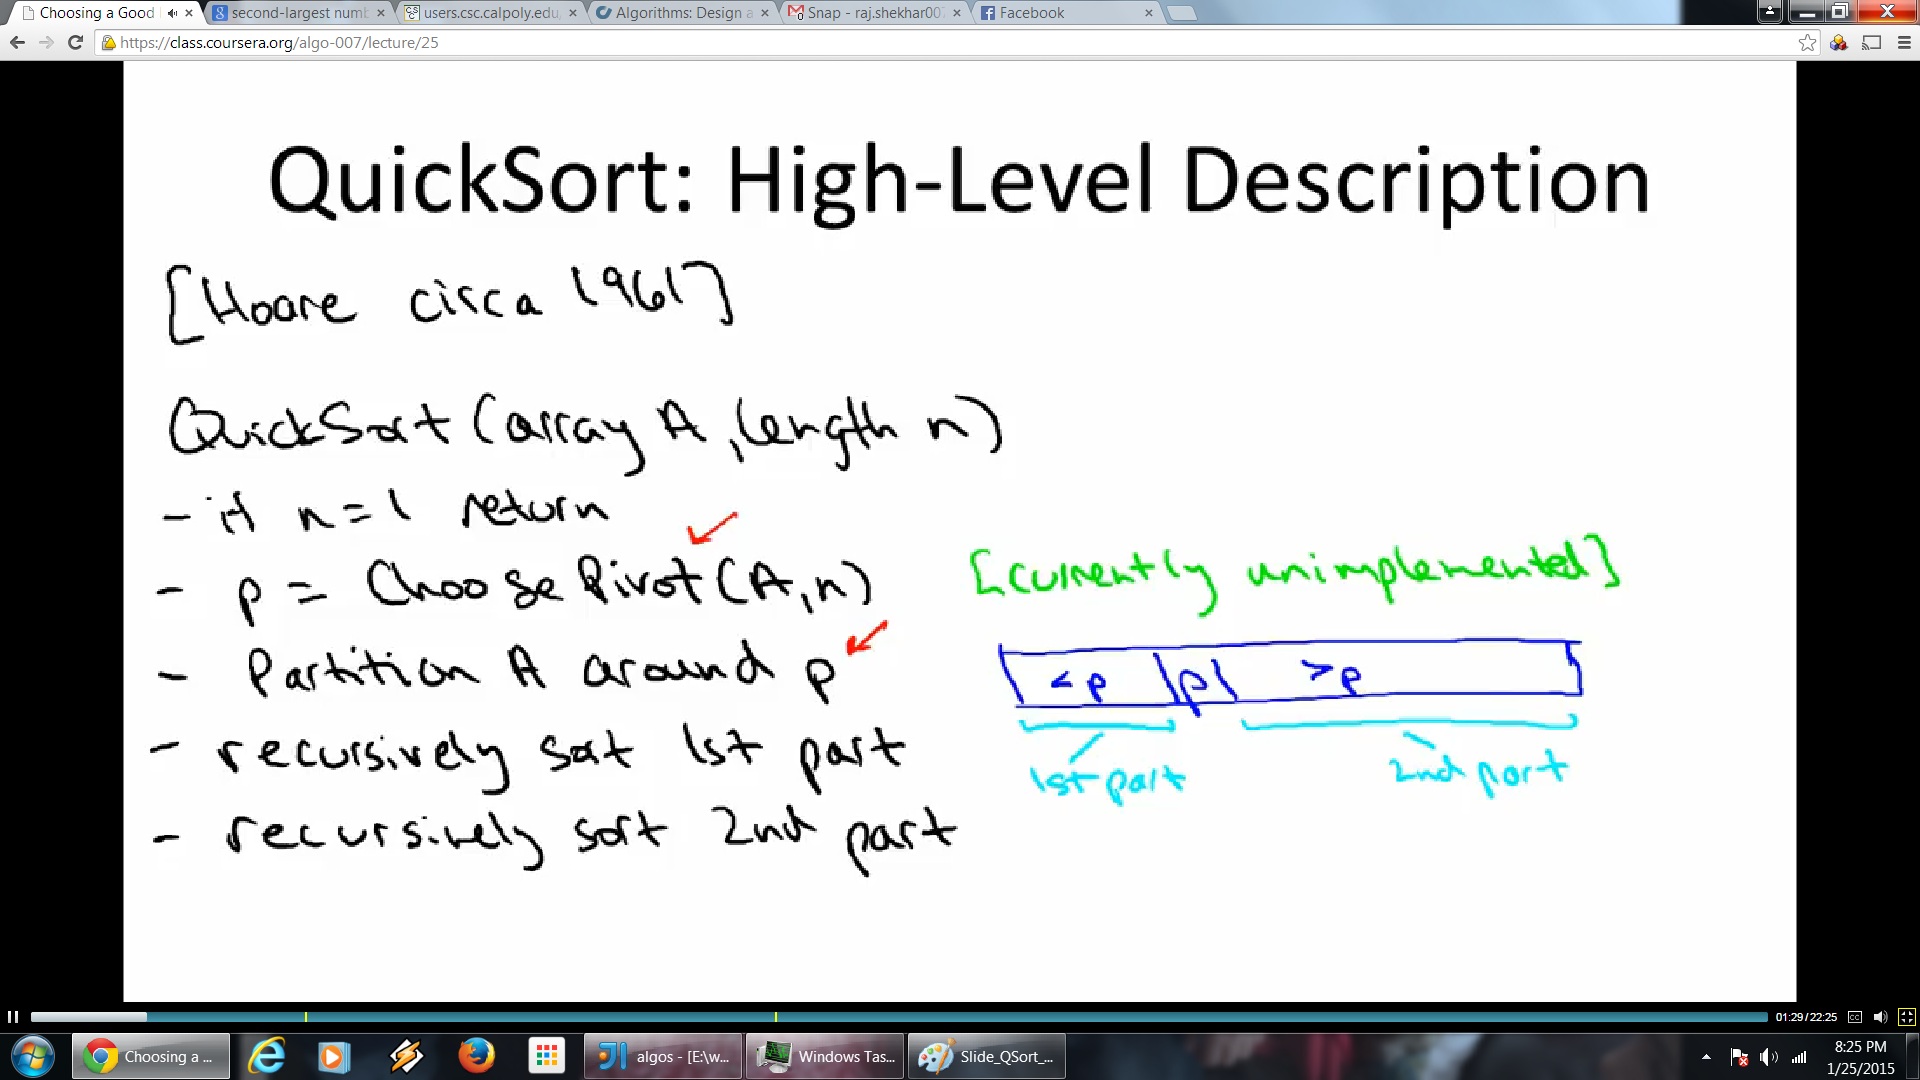 Choosing a Good
second-largest numb
users.csc.calpoly.edu/
Algorithms: Design a
Snap - raj.shekhar007
Facebook
https://class.coursera.org/algo-007/lecture/25
QuickSort: High-Level Description
[Hoare circa 1961]
QuickSort (array A, length n)
- if n=1 return
- p = ChoosePivot(A,n)
[currently unimplemented]
- Partition A around p
<p | p | >p
- recursively sort 1st part
1st part
2nd part
- recursively sort 2nd part
01:29/22:25
CC
Choosing a ...
algos - [E:\w...
Windows Tas...
Slide_QSort_...
8:25 PM
1/25/2015